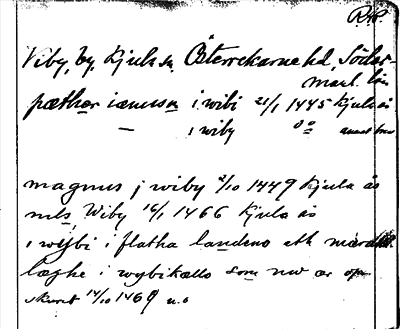 Viby, by, Kjula sn. Österrekarne hd, Söder-
manl. län
pæther iønsson i wibi 21/1 1445 Kjula ås
— i wiby
magnus j wiby 2/10 1449 Kjula ås
nils Wiby 16/1 1466 Kjula ås
i wijbi i flatha landeno
læghe i wybikælle som nw ær op-
skuret 14/10 1469 u.o